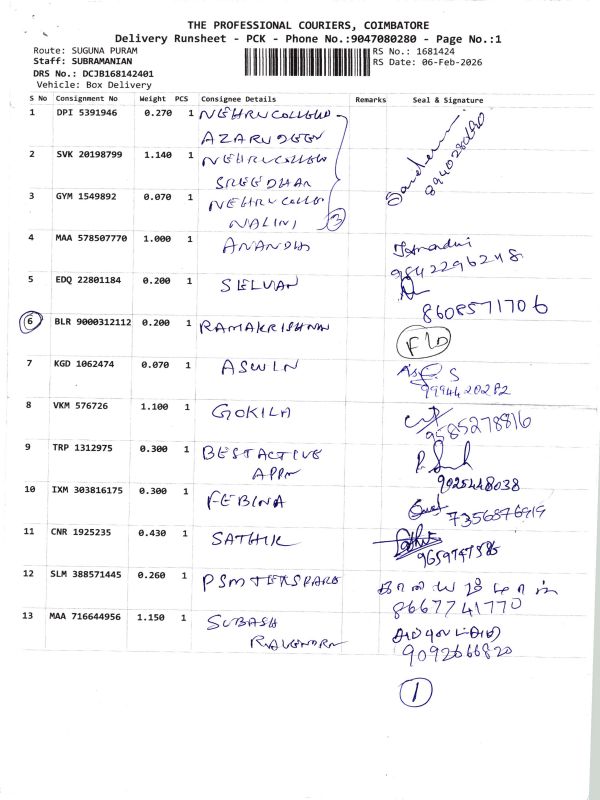 THE PROFESSIONAL COURIERS, COIMBATORE
Delivery Runsheet - PCK - Phone No.:9047080280 - Page No.:1
Route: SUGUNA PURAM
RS No.: 1681424
Staff: SUBRAMANIAN
RS Date: 06-Feb-2026
DRS No.: DCJB168142401
Vehicle: Box Delivery
S No Consignment No Weight PCS Consignee Details Remarks Seal & Signature
1 DPI 5391946 0.270 1 NEHRU COLLEGE
AZARUDEEN
2 SVK 20198799 1.140 1 NEHRU COLLEGE
SREEDHAR
3 GYM 1549892 0.070 1 NEHRU COLLE
NALINI 3
4 MAA 578507770 1.000 1 ANANDHI
9842296248
5 EDQ 22801184 0.200 1 SELVAN
8608571706
6 BLR 9000312112 0.200 1 RAMAKRISHNAN F/D
7 KGD 1062474 0.070 1 ASWIN
8 VKM 576726 1.100 1 GOKILA
9585278816
9 TRP 1312975 0.300 1 BESTACTIVE
APPN
9025448038
10 IXM 303816175 0.300 1 FEBINA
11 CNR 1925235 0.430 1 SATHIK
12 SLM 388571445 0.260 1 PSM TEX SPARE
8667741770
13 MAA 716644956 1.150 1 SUBASH
RAVENDRN
9092666820
1